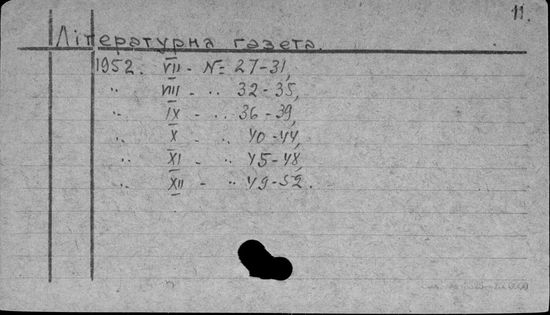 11.
Літературна газета.
1952. VII - № 27-31,
" VIII - " 32-35,
" IX - " 36-39,
" X - " 40-44,
" XI - " 45-48,
" XII - " 49-52.